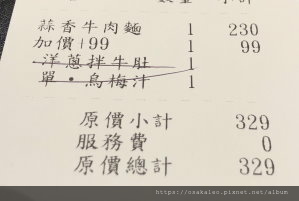 蒜香牛肉麵 1 230
加價|99 1 99
洋蔥拌牛肚 1
單·烏梅汁 1
原價小計 329
服務費 0
原價總計 329
https://osakaleo.pixnet.net/album